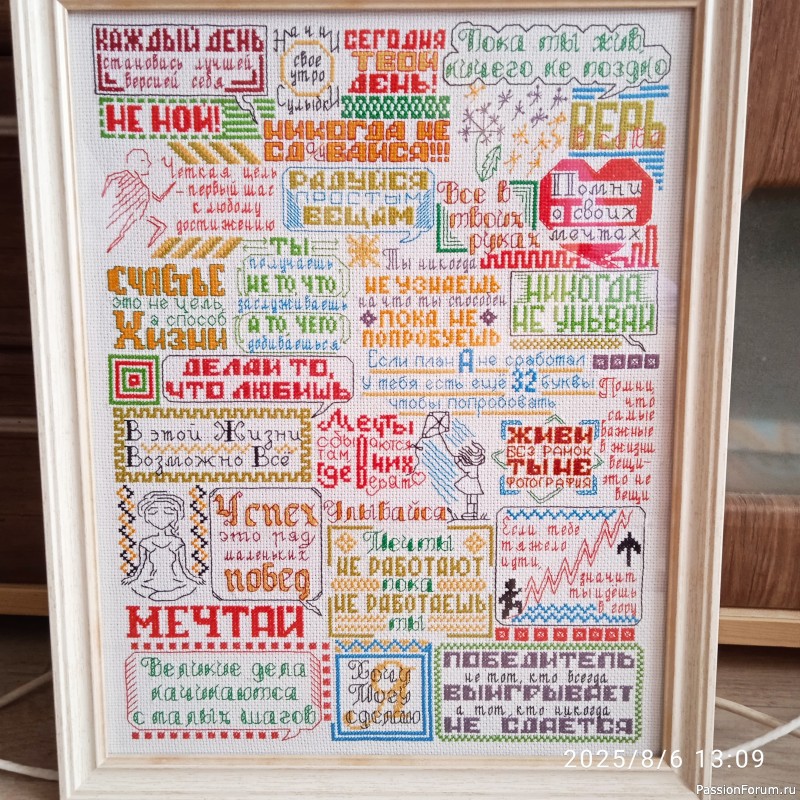 КАЖДЫЙ ДЕНЬ
становись лучшей
версией себя
Начни
своё
утро
с улыбки
СЕГОДНЯ
ТВОЙ
ДЕНЬ!
Пока ты жив,
ничего не поздно
НЕ НОЙ!
НИКОГДА НЕ
СДАВАЙСЯ!!!
ВЕРЬ
Чёткая цель
- первый шаг
к любому
достижению
РАДУЙСЯ
ПРОСТЫМ
ВЕЩАМ
Всё в
твоих
руках
Помни
о своих
мечтах
СЧАСТЬЕ
это не цель,
а способ
Жизни
ТЫ
получаешь
НЕ ТО ЧТО
заслуживаешь
А ТО, ЧЕГО
добиваешься
Ты никогда
НЕ УЗНАЕШЬ
на что ты способен
ПОКА НЕ
ПОПРОБУЕШЬ
НИКОГДА
НЕ УНЫВАЙ
ДЕЛАЙ ТО,
ЧТО ЛЮБИШЬ
Если план А не сработал
У тебя есть ещё 32 буквы
чтобы попробовать
Помни,
что
самые
важные
в жизни
вещи-
это не
вещи
В этой Жизни
Возможно Всё
Мечты
сбываются
там
где в них
верят
ЖИВИ
БЕЗ РАМОК
ТЫ НЕ
ФОТОГРАФИЯ
Успех
это ряд
маленьких
побед
Улыбайся
Мечты
НЕ РАБОТАЮТ
пока
НЕ РАБОТАЕШЬ
ты
Если тебе
тяжело
идти,
значит
ты идёшь
в гору
МЕЧТАЙ
Великие дела
начинаются
с малых шагов
Я
Хочу
Могу
сделаю
ПОБЕДИТЕЛЬ
не тот, кто всегда
ВЫИГРЫВАЕТ
а тот, кто никогда
НЕ СДАЁТСЯ
2025/8/6 13:09
PassionForum.ru